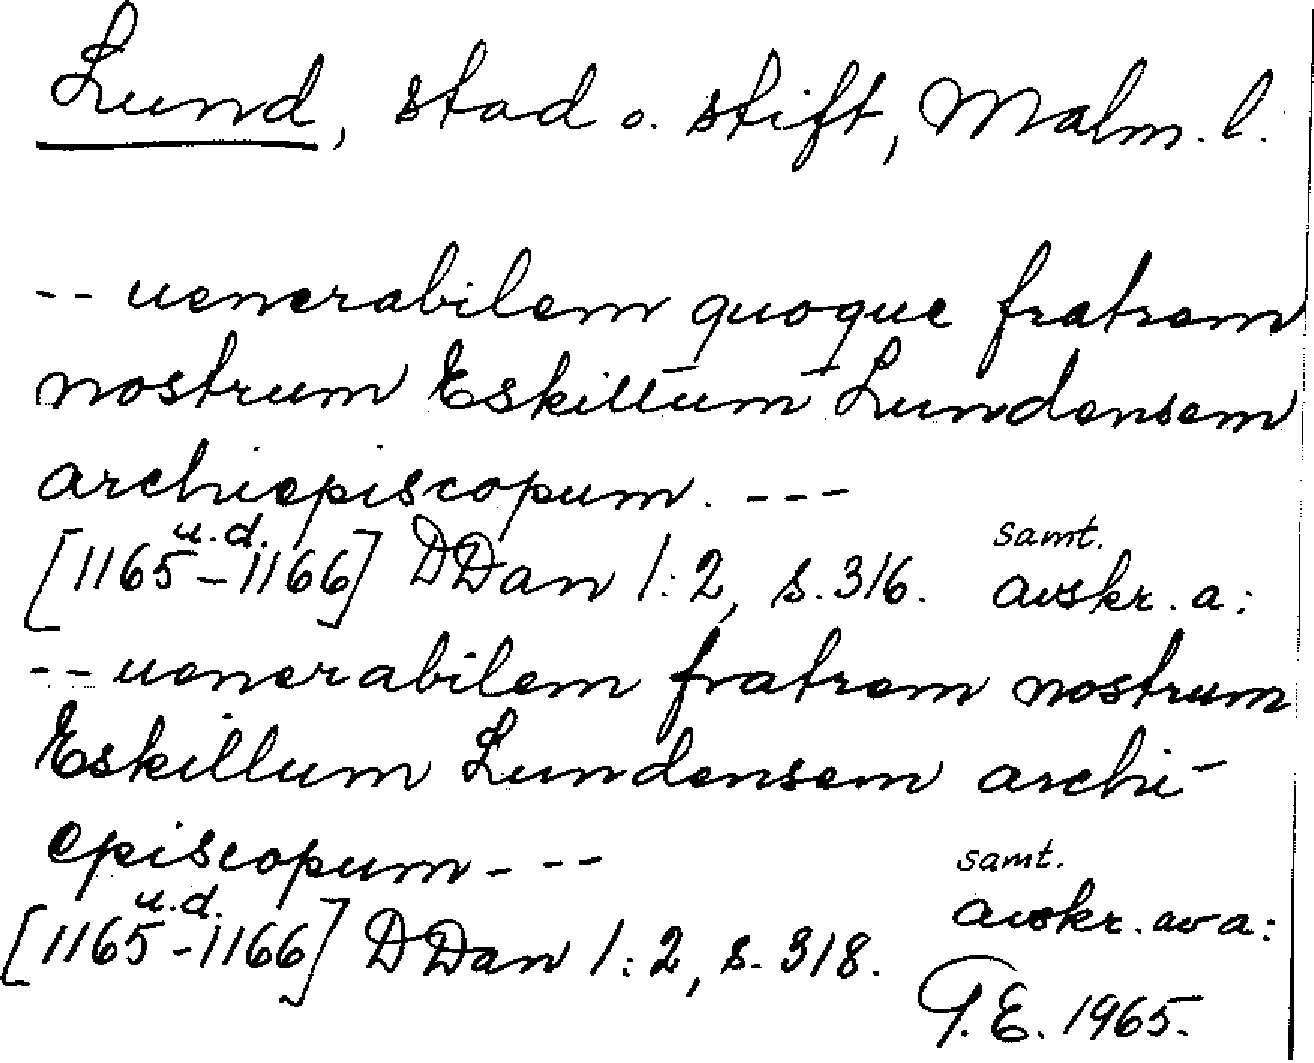 Lund, stad o. stift, Malm. l.
-- uenerabilem quoque fratrem
nostrum Eskillum Lundensem
archiepiscopum. ---
u.d.
[1165-1166] DDan 1:2, s. 316. samt. avskr. a:
-- uenerabilem fratrem nostrum
Eskillum Lundensem archi-
episcopum ---
u.d.
[1165-1166] DDan 1:2, s. 318. samt. avskr. av a:
G.E. 1965.